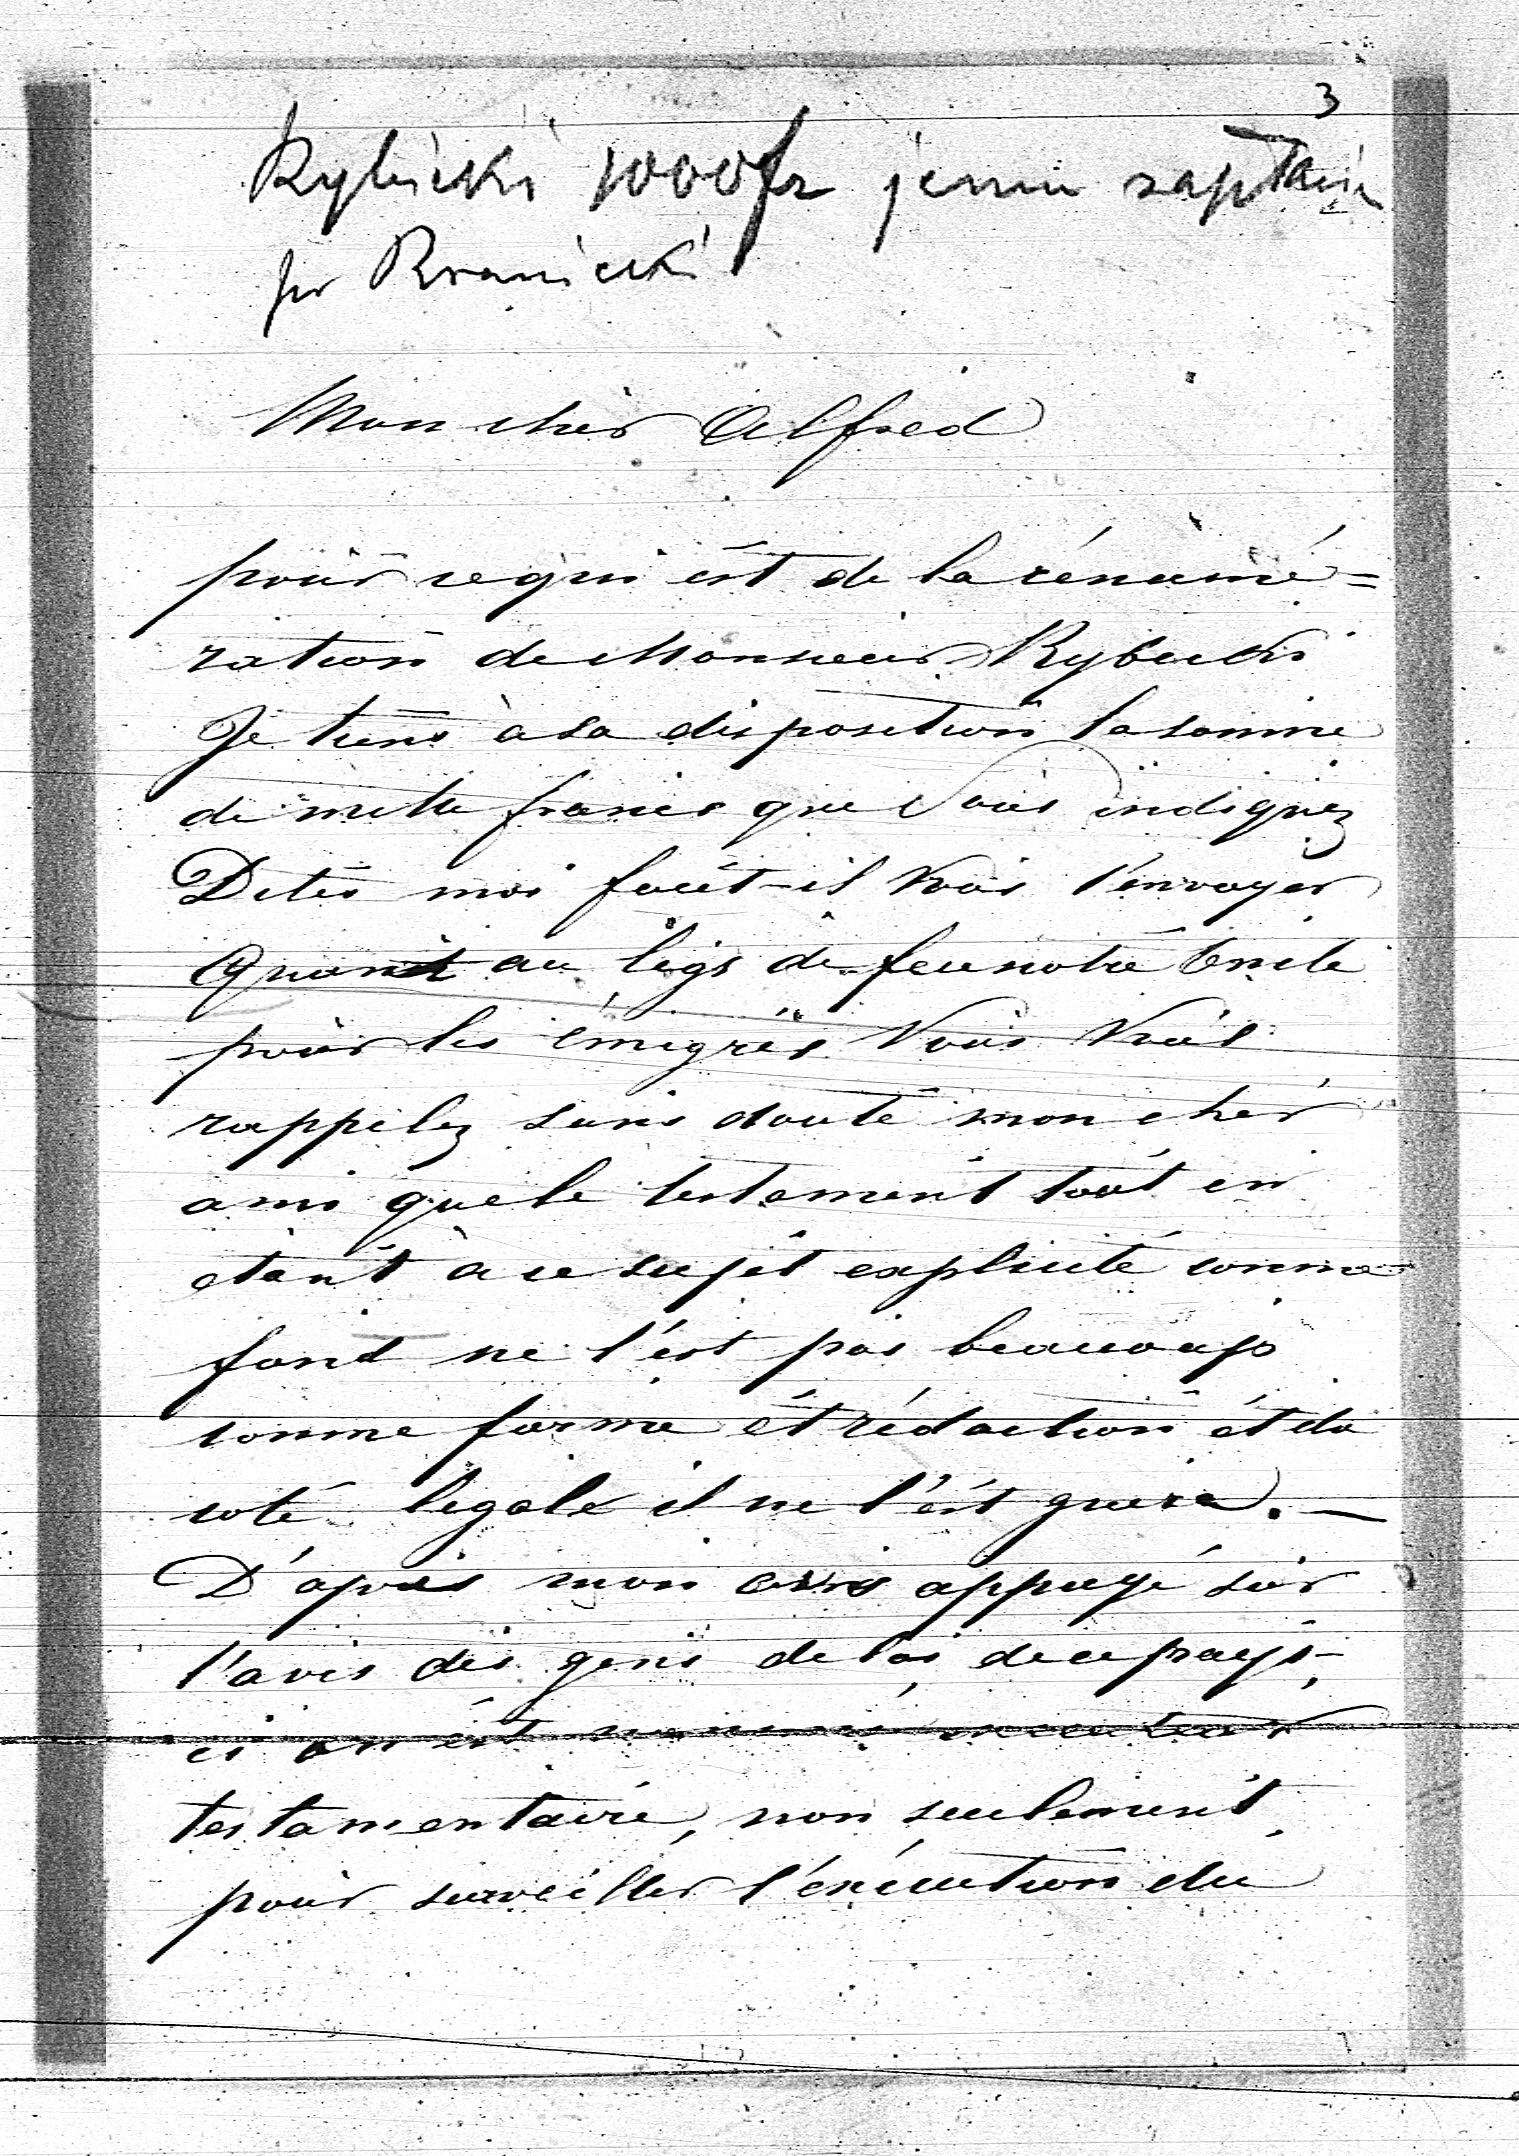 3
Rybicki 1000fr jemu zapłaci
pr Branicki
Mon cher Alfred
pour ce qui est de la rénumé=
ration de Monsieur Rybicki
Je tiens à sa disposition la somme
de mille francs que Vous indiquez
Dites moi faut-il Vous l'envoyer
Quant au legs de feu notre Oncle
pour les émigrés Vous Vous
rappelez sans doute mon cher
ami que le testament tout en
étant à ce sujet explicite comme
fond ne l'est pas beaucoup
comme forme et rédaction et du
coté légale il ne l'est guère. —
D'après mon avis appuyé sur
l'avis des gens de loi de ce pays-
ci on est nommé executeur
testamentaire, non seulement
pour surveiller l'éxécution du